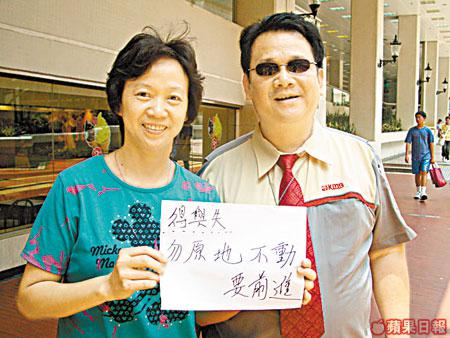 得與失
勿原地不動
要前進
Mickey
Mo
蘋果日報